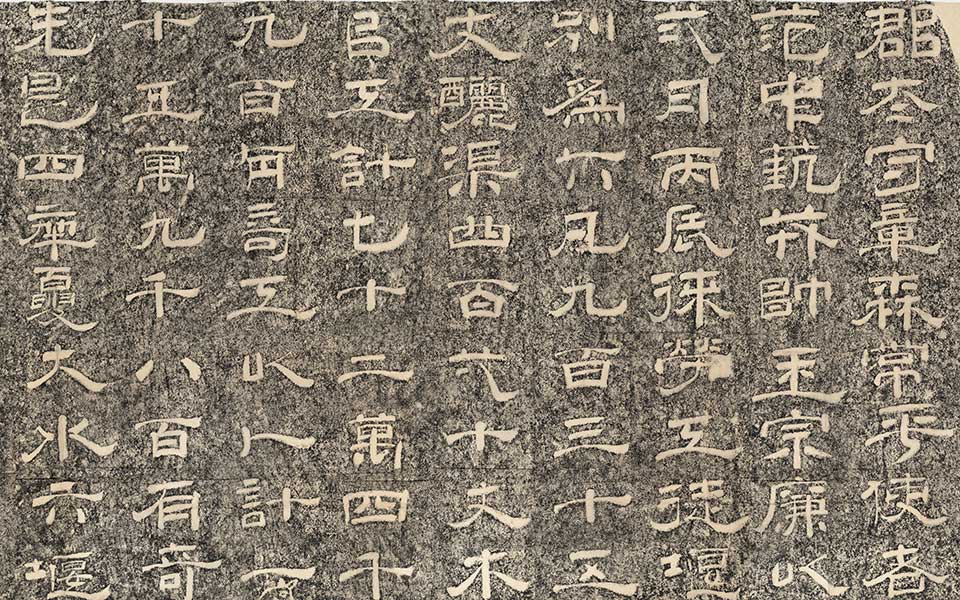 郡太守章森常平使者
范中埶戎帥王宗廉以
弍月丙辰徠勞工徒堰
別為六凡九百三十五
丈釃渠四百弌十丈木
㠯工計七十二萬四千
九百有奇工以人計一
十五萬九千八百有奇
先是四年夏大水六堰